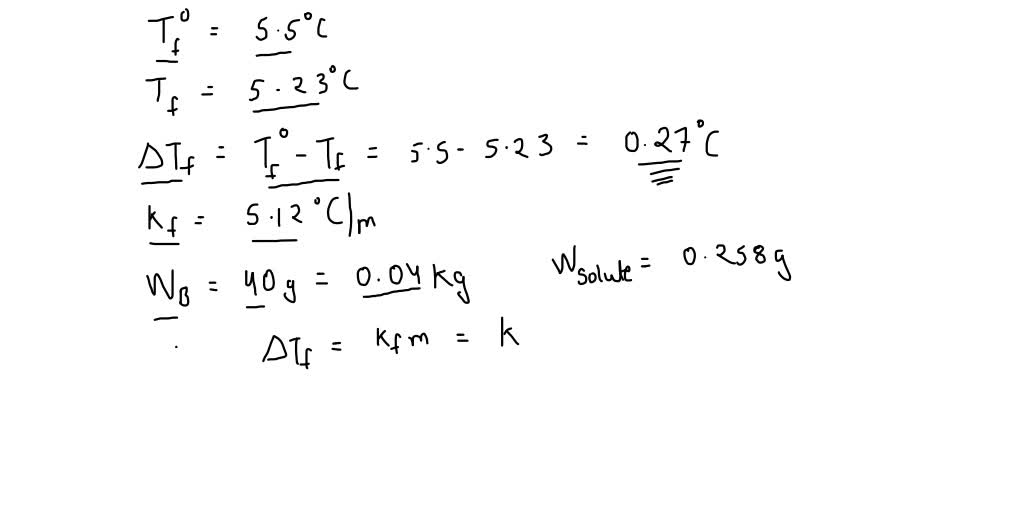 T_f° = 5.5°C
T_f = 5.23°C
ΔT_f = T_f° - T_f = 5.5 - 5.23 = 0.27°C
k_f = 5.12°C/m
W_B = 40g = 0.04 kg
W_solute = 0.258g
ΔT_f = k_f m = k